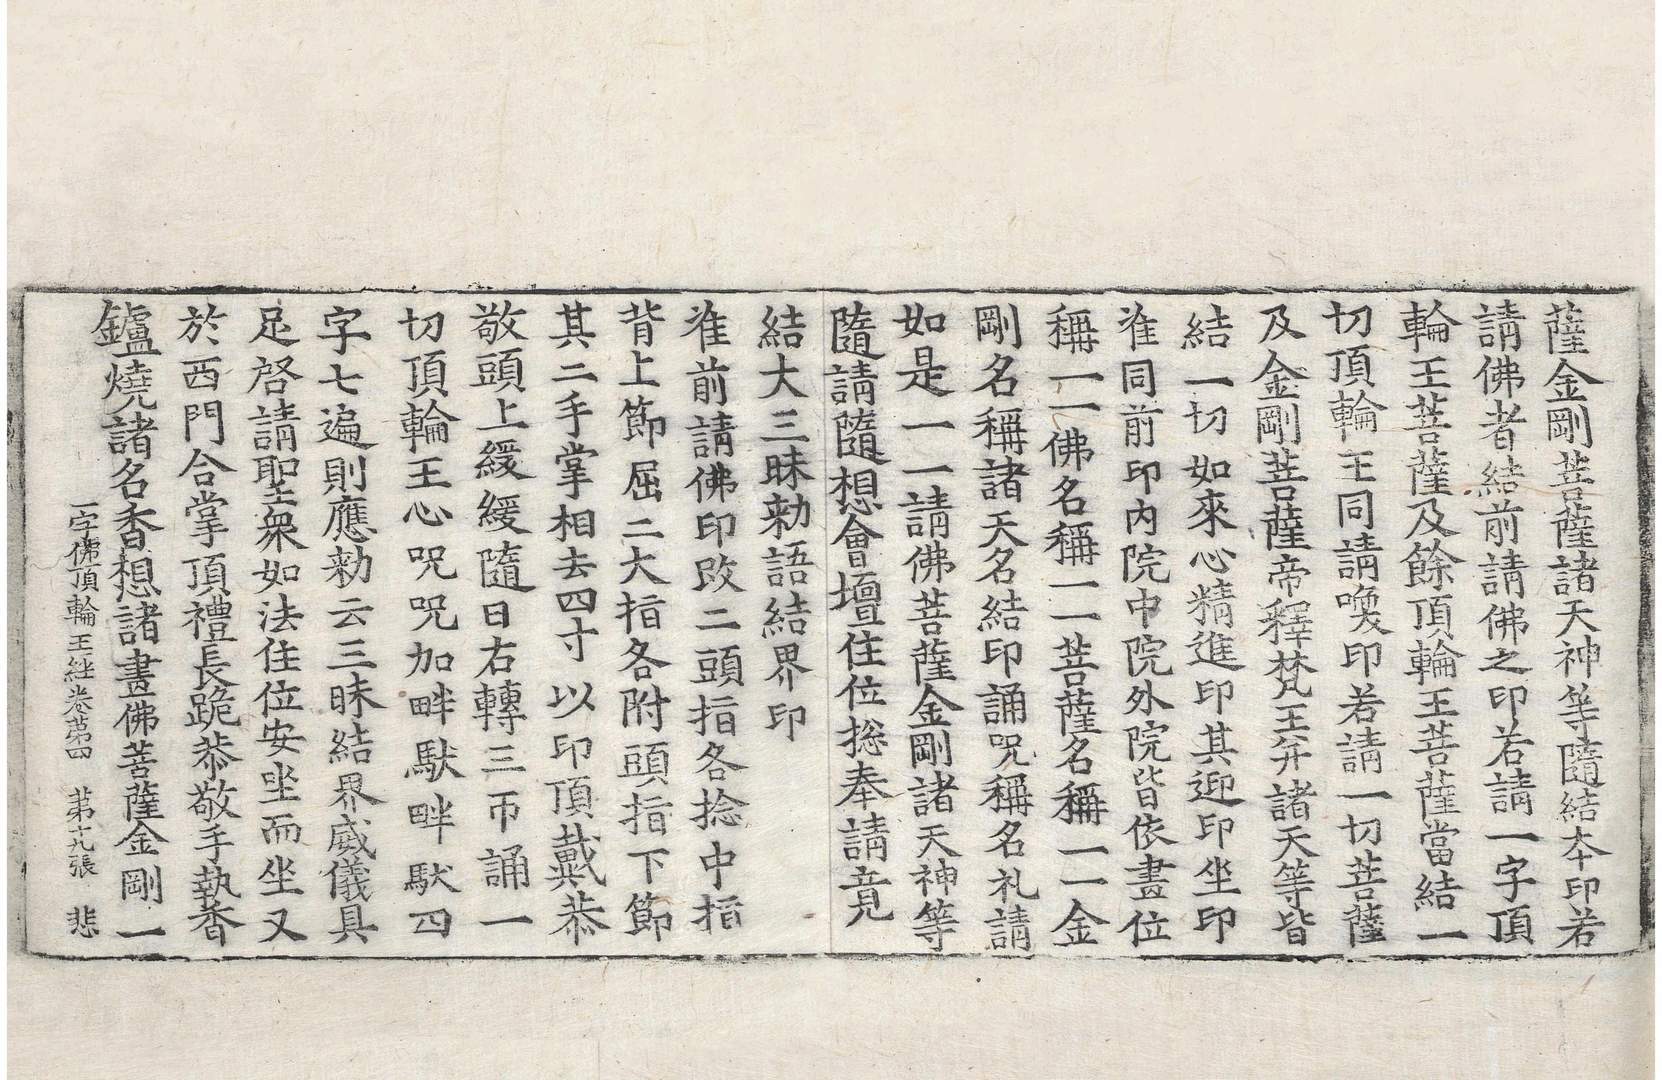 薩金剛菩薩諸天神等隨結本印若
請佛者結前請佛之印若請一字頂
輪王菩薩及餘頂輪王菩薩當結一
切頂輪王同請喚印若請一切菩薩
及金剛菩薩帝釋梵王并諸天等皆
結一切如來心精進印其迎印坐印
准同前印內院中院外院皆依畫位
稱一一佛名稱一一菩薩名稱一一金
剛名稱諸天名結印誦呪稱名礼請
如是一一請佛菩薩金剛諸天神等
隨請隨想會壇住位捴奉請竟
結大三昧勑語結界印
准前請佛印改二頭指各捻中指
背上節屈二大指各附頭指下節
其二手掌相去四寸以印頂戴恭
敬頭上緩緩隨日右轉三帀誦一
切頂輪王心呪呪加畔馱畔馱四
字七遍則應勑云三昧結界威儀具
足啓請聖衆如法住位安坐而坐又
於西門合掌頂禮長跪恭敬手執香
鑪燒諸名香想諸畫佛菩薩金剛一
一字佛頂輪王経卷苐四　苐十九張　悲